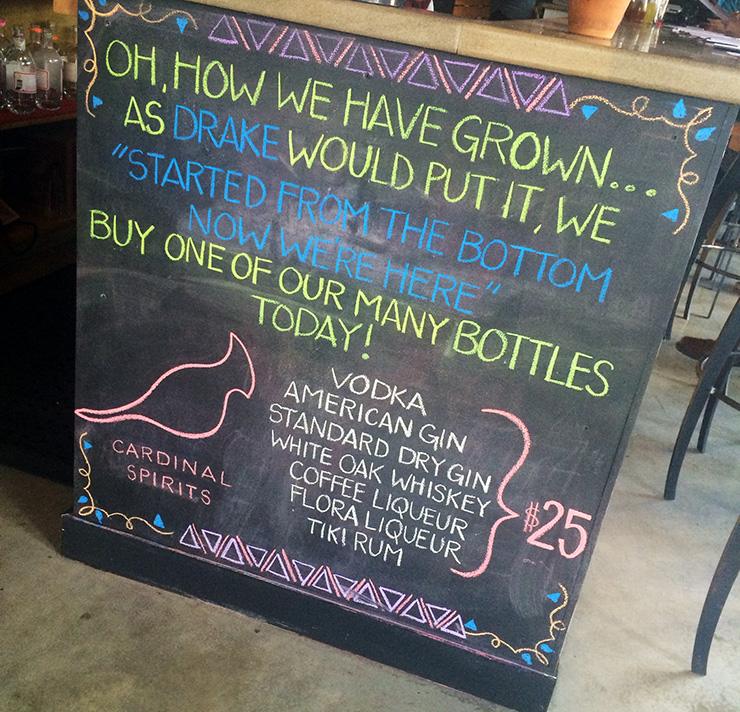 OH, HOW WE HAVE GROWN...
AS DRAKE WOULD PUT IT, WE
"STARTED FROM THE BOTTOM
NOW WE'RE HERE"
BUY ONE OF OUR MANY BOTTLES
TODAY!
VODKA
AMERICAN GIN
STANDARD DRY GIN
WHITE OAK WHISKEY
COFFEE LIQUEUR
FLORA LIQUEUR
TIKI RUM
$25
CARDINAL
SPIRITS